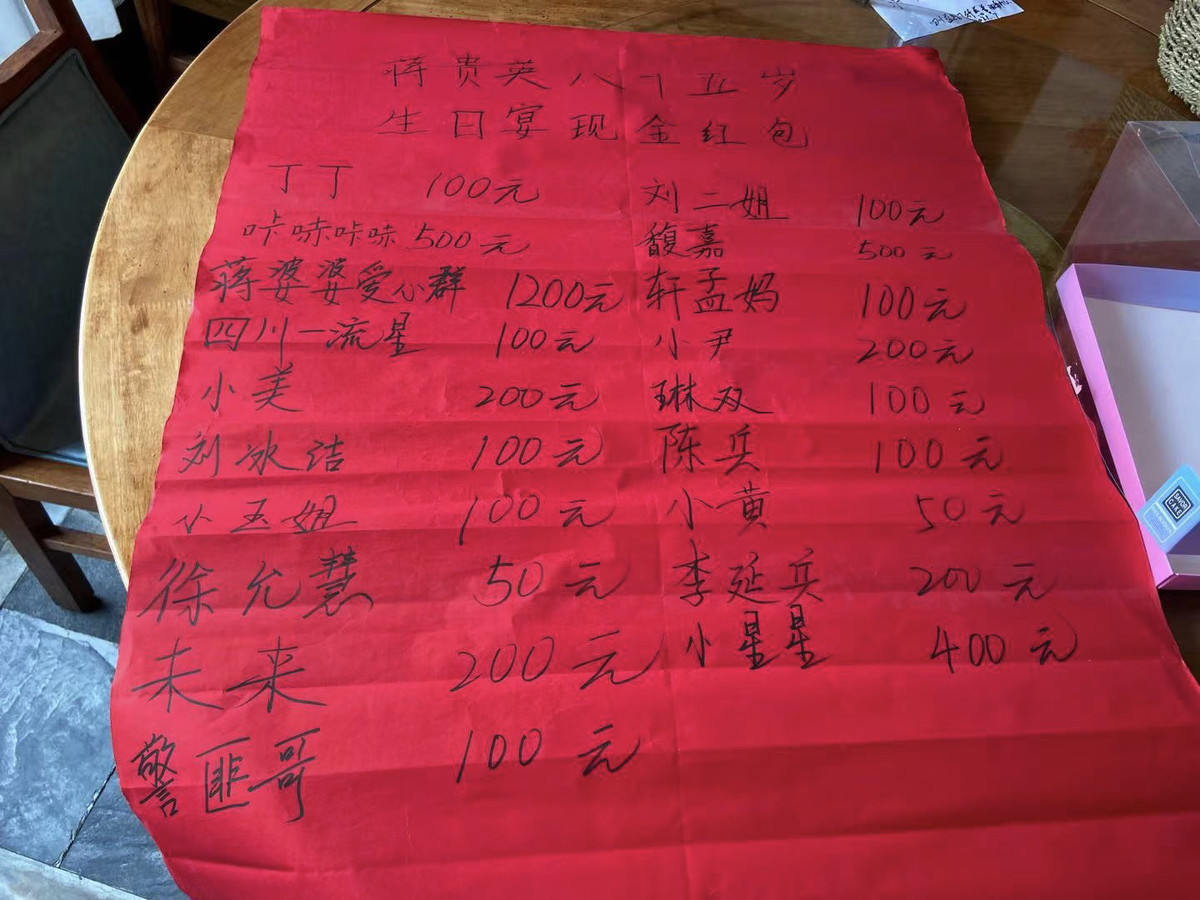 蒋贵英八十五岁
生日宴现金红包
丁丁 100元
咔哧咔哧 500元
蒋婆婆爱心群 1200元
四川一流星 100元
小美 200元
刘冰洁 100元
小玉姐 100元
徐允慧 50元
未来 200元
警匪哥 100元
刘二姐 100元
馥嘉 500元
轩孟妈 100元
小尹 200元
琳双 100元
陈兵 100元
小黄 50元
李延兵 200元
小星星 400元